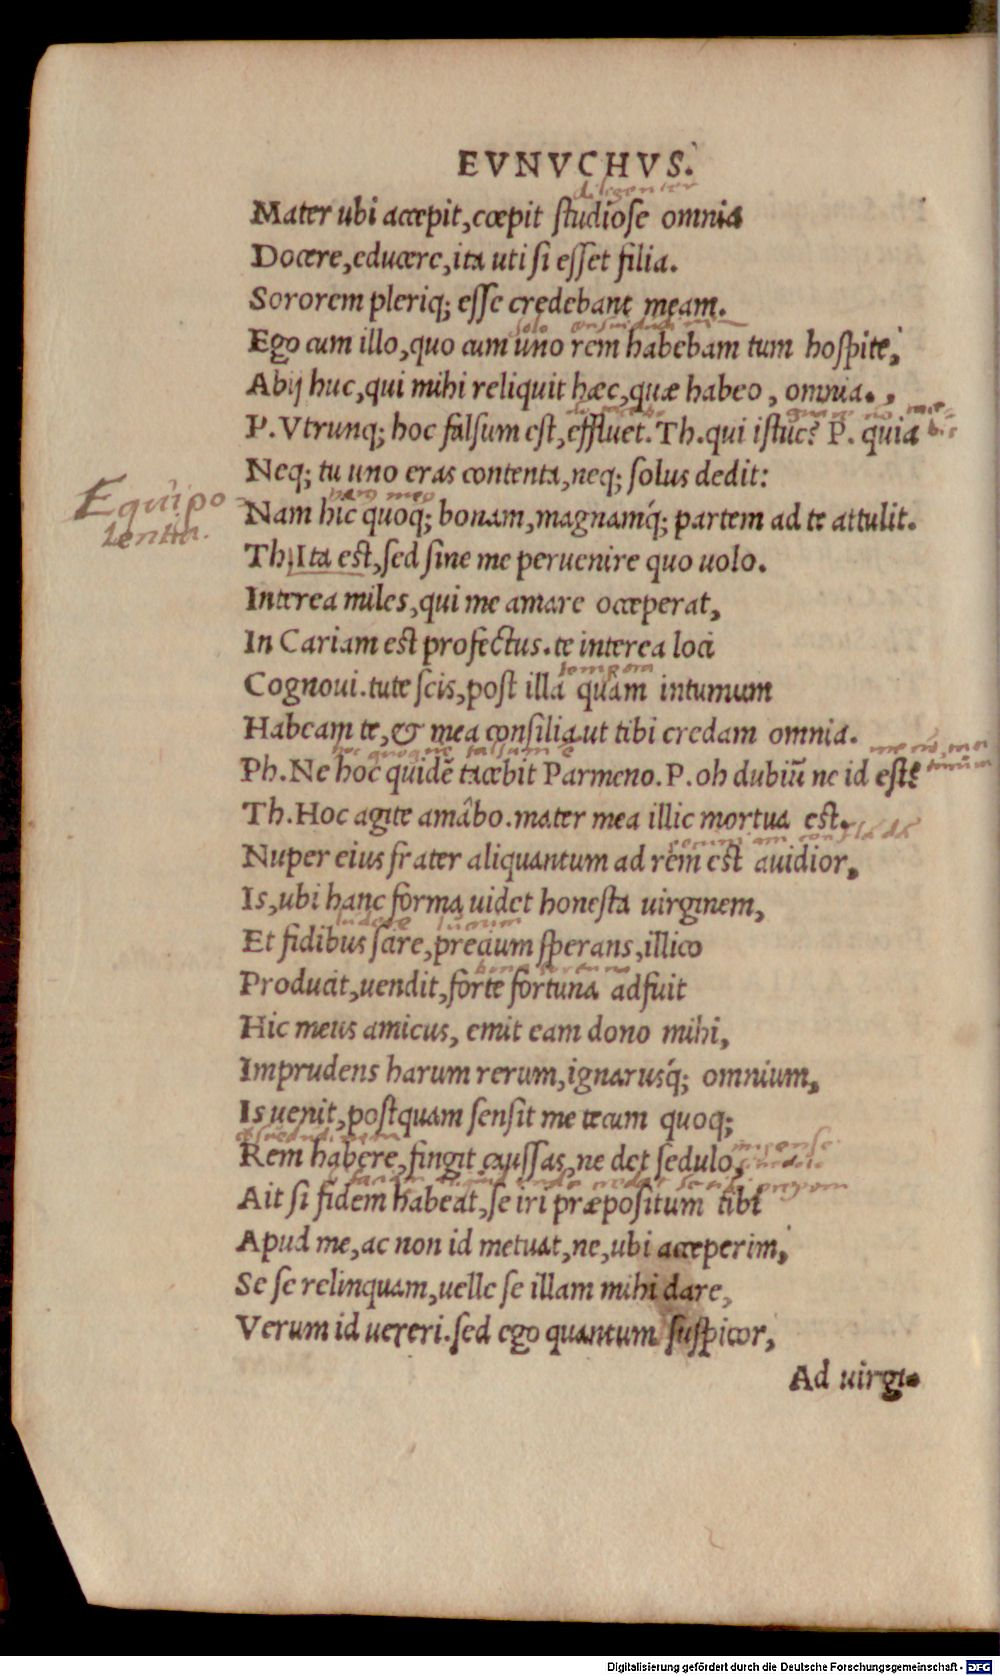 EVNVCHVS.
diligenter
Mater ubi accepit, cœpit studiose omnia
Docere, educere, ita uti si esset filia.
Sororem pleriq; esse credebant meam.
solo
Ego cum illo, quo cum uno rem habebam tum hospite,
Abij huc, qui mihi reliquit hæc, quæ habeo, omnia.
P. Vtrunq; hoc falsum est, effluet. Th. qui istuc? P. quia
Neq; tu uno eras contenta, neq; solus dedit:
Nam hic quoq; bonam, magnamq́; partem ad te attulit.
Equipo
lentia.
Th. Ita est, sed sine me peruenire quo uolo.
Interea miles, qui me amare occeperat,
In Cariam est profectus. te interea loci
Cognoui. tute scis, post illa quàm intumum
Habeam te, & mea consilia ut tibi credam omnia.
hoc quoque falsum ē
Ph. Ne hoc quidē tacebit Parmeno. P. oh dubiū ne id est?
Th. Hoc agite amâbo. mater mea illic mortua est.
Nuper eius frater aliquantum ad rem est auidior,
Is, ubi hanc forma uidet honesta uirginem,
ludere
Et fidibus scire, precium sperans, illico
bona fortuna
Producit, uendit, forte fortuna adfuit
Hic meus amicus, emit eam dono mihi,
Imprudens harum rerum, ignarusq́; omnium,
Is uenit, postquam sensit me tecum quoq;
Rem habere, fingit caussas, ne det sedulo,
Ait si fidem habeat, se iri præpositum tibi
Apud me, ac non id metuat, ne, ubi acceperim,
Se se relinquam, uelle se illam mihi dare,
Verum id uereri. sed ego quantum suspicor,
Ad uirgi-
Digitalisierung gefördert durch die Deutsche Forschungsgemeinschaft - DFG